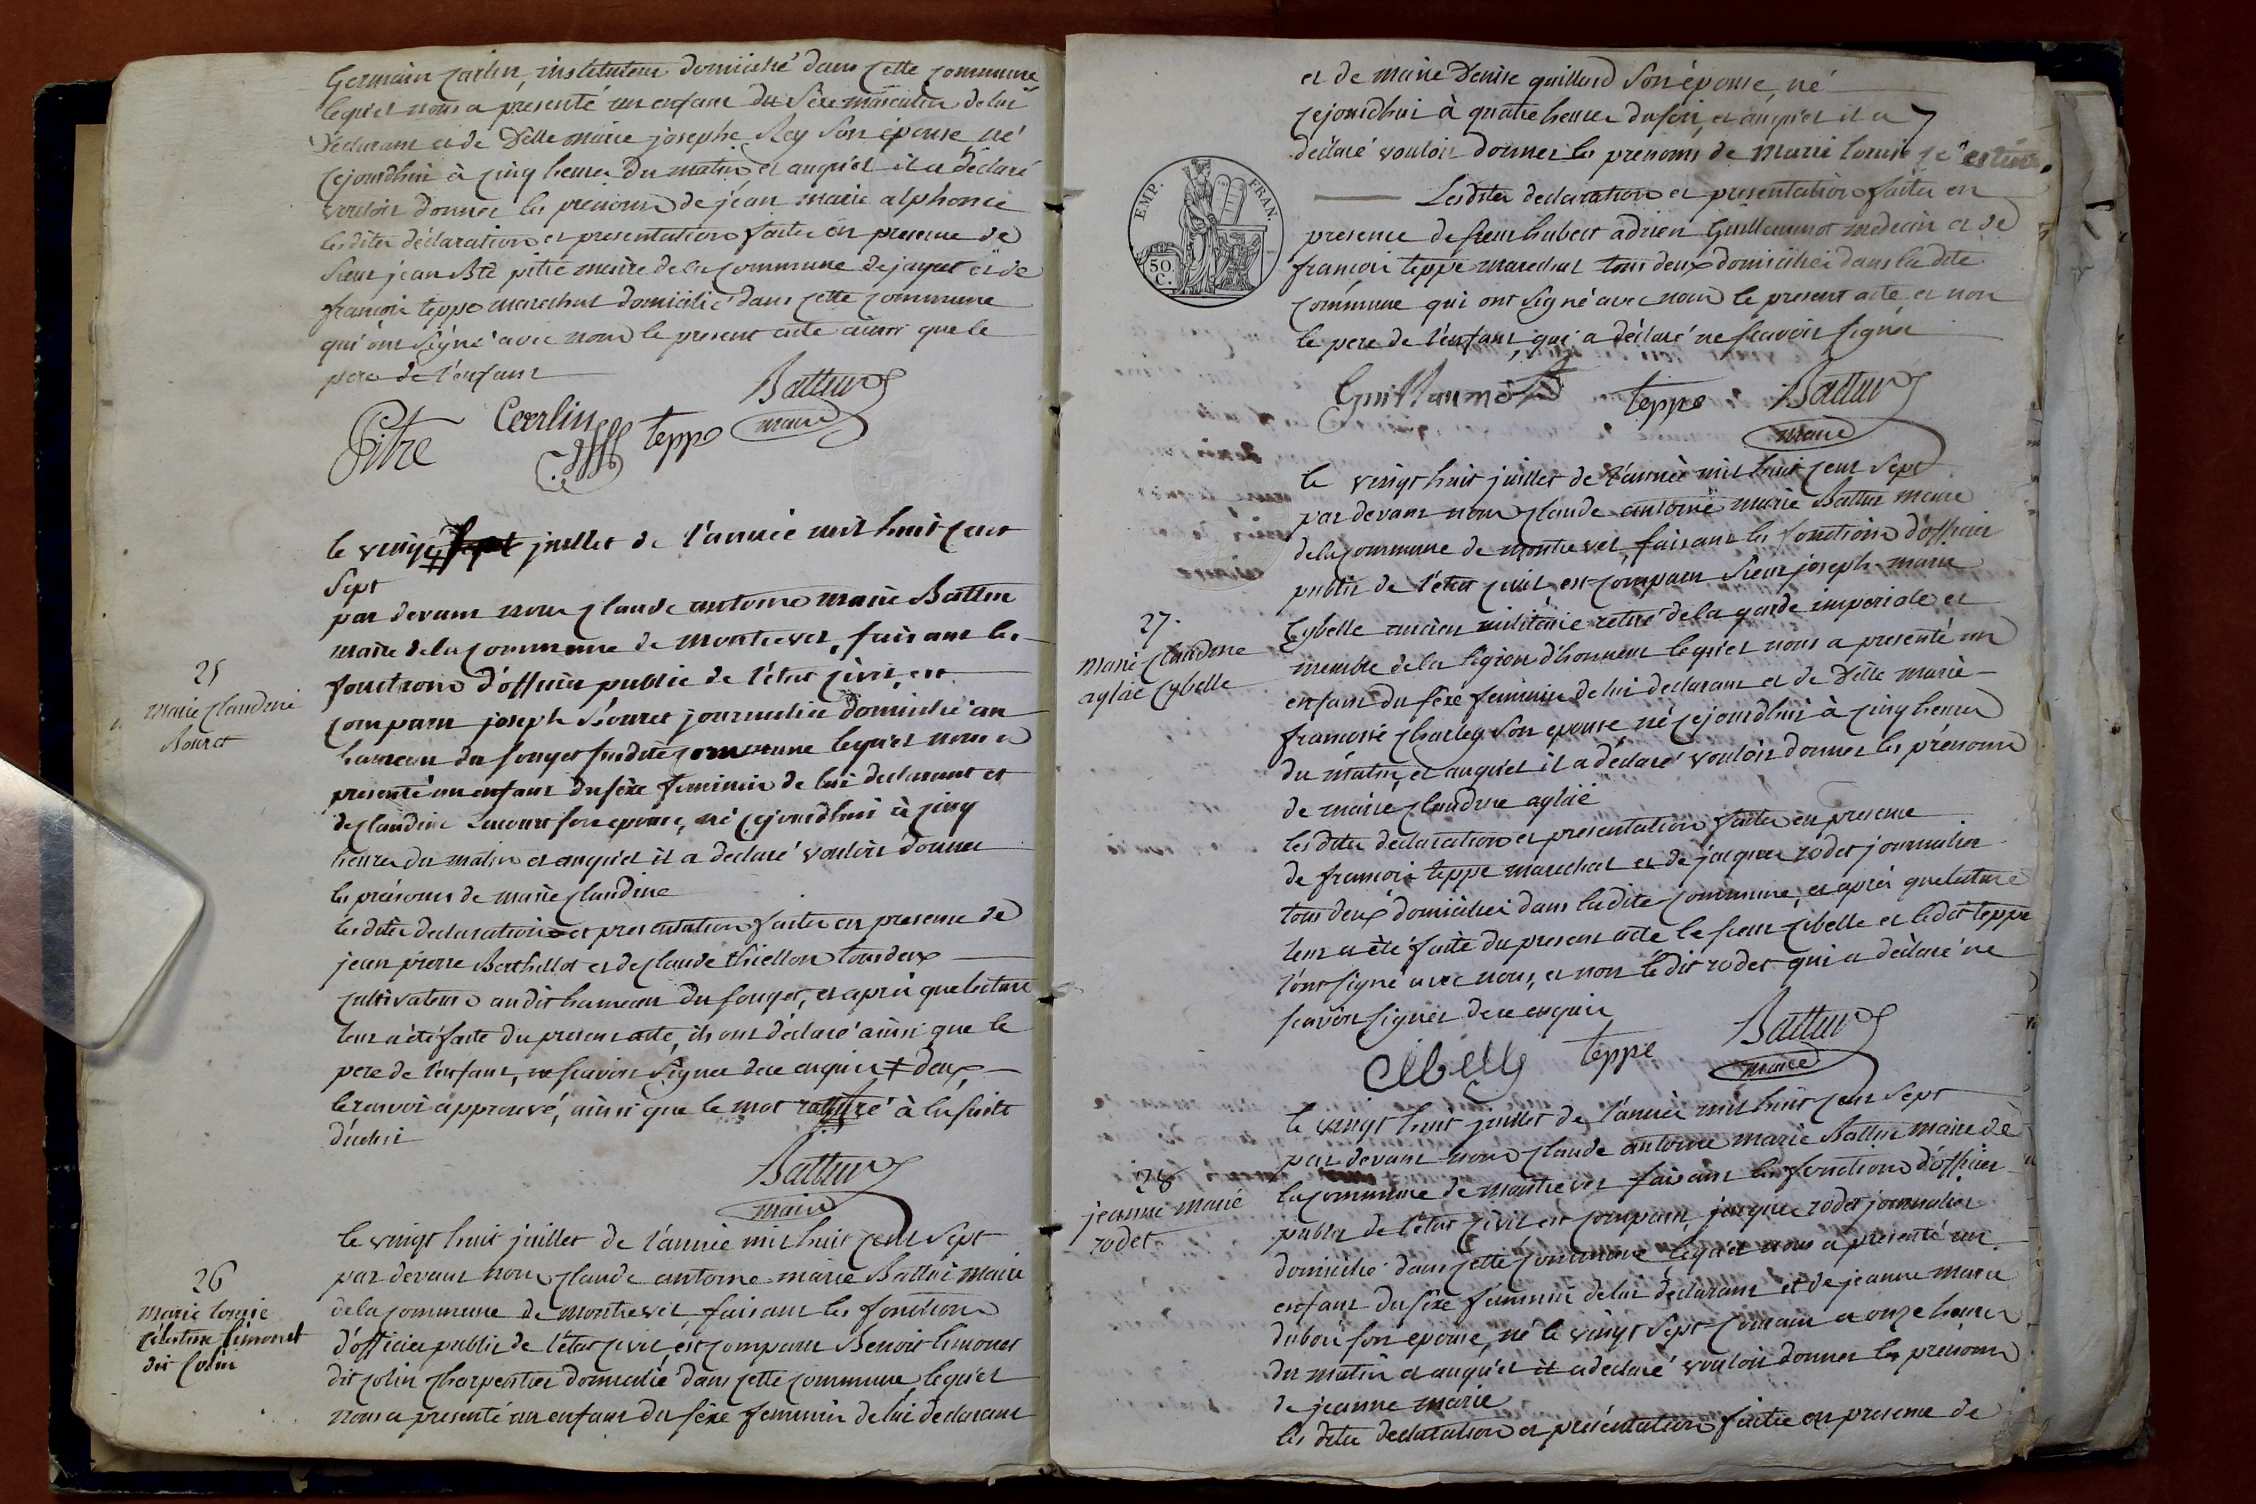 Germain Carlin, instituteur domicilié dans cette commune
lequel nous a présenté un enfant du sexe masculin de lui
déclarant et de Delle marie josephe Rey son épouse né
cejourdhui à cinq heures du matin et auquel il a déclaré
vouloir donner les prénoms de jean marie alphonse
lesdites déclaration et presentation faites en presence de
sieur jean Bte pitre maire de la commune de jayat et de
francois teppe marechal domicilié dans cette commune
qui ont signé avec nous le present acte ainsi que le
pere de l'enfant
Pitre Carlin teppe Battur
maire
le vingt sept juillet de l'année mil huit cent
Sept
par devant nous Claude antoine marie Battur
maire de la commune de montrevel, faisant les
fonctions d'officier public de l'état civil, est
25
marie Claudine
Bouret
comparu joseph Bouret journalier domicilié au
hameau du fouget susdite commune lequel nous a
présenté un enfant du sexe feminin de lui declarant et
de Claudine son epouse, né cejourdhui à cinq
heures du matin et auquel il a declaré vouloir donner
les prénoms de marie Claudine
les dites declaration et presentation faites en presence de
jean pierre Berthillot et de Claude thiellon tous deux
cultivateurs audit hameau du fouget, et après que lecture
leur a été faite du present acte, ils ont déclaré ainsi que le
pere de l'enfant, ne scavoir signer de ce enquis ‡ deux
le renvoi approuvé, ainsi que le mot raturé à la suite
d'icelui
Battur
maire
le vingt huit juillet de l'année mil huit cent sept
26
marie louise
célestine limonet
dit Colin
par devant nous Claude antoine marie Battur maire
de la commune de montrevel, faisant les fonctions
d'officier public de l'état civil est comparu Benoit limonet
dit Colin charpentier domicilié dans cette commune lequel
nous a presenté un enfant du sexe feminin de lui declarant
et de marie Denise guillard son épouse, né
cejourdhui à quatre heures du soir et auquel il a
déclaré vouloir donner les prenoms de marie louise celestine.
EMP. FRAN.
50 C.
Lesdites declaration et presentation faites en
presence de sieur hubert adrien Guillaumot medecin et de
francois teppe marechal tous deux domiciliés dans la dite
commune qui ont signé avec nous le present acte et non
le pere de l'enfant, qui a déclaré ne scavoir signer
Guillaumot teppe Battur
maire
le vingt huit juillet de l'année mil huit cent sept
par devant nous Claude antoine marie Battur maire
de la commune de montrevel, faisant les fonctions d'officier
public de l'état civil, est comparu sieur joseph marie
27.
marie Claudine
aglaé Cybelle
Cybelle ancien militaire retiré de la garde imperiale et
membre de la légion d'honneur lequel nous a presenté un
enfant du sexe feminin de lui declarant et de Delle marie
francoise Charley son epouse né cejourdhui à cinq heures
du matin, et auquel il a déclaré vouloir donner les prénoms
de marie Claudine aglaé
lesdites declaration et presentation faites en presence
de francois teppe marechal et de jacques rodet journalier
tous deux domiciliés dans ladite commune, et après que lecture
leur a été faite du present acte le sieur Cibelle et ledit teppe
l'ont signé avec nous, et non ledit rodet qui a déclaré ne
scavoir signer de ce enquis
Cibelle teppe Battur
maire
le vingt huit juillet de l'année mil huit cent sept
28
jeanne marie
rodet
par devant nous Claude antoine marie Battur maire de
la commune de montrevel faisant les fonctions d'officier
public de l'état civil est comparu jacques rodet journalier
domicilié dans cette commune lequel nous a présenté un
enfant du sexe feminin de lui declarant et de jeanne marie
dubois son epouse, né le vingt sept courant a onze heures
du matin et auquel il a déclaré vouloir donner les prénoms
de jeanne marie
les dites declaration et présentation faites en presence de